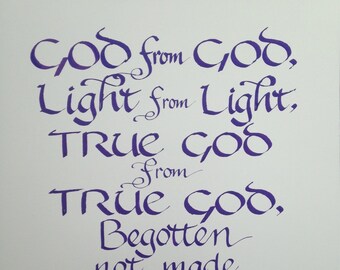 GOD from GOD,
Light from Light,
TRUE GOD
from
TRUE GOD,
Begotten
not made